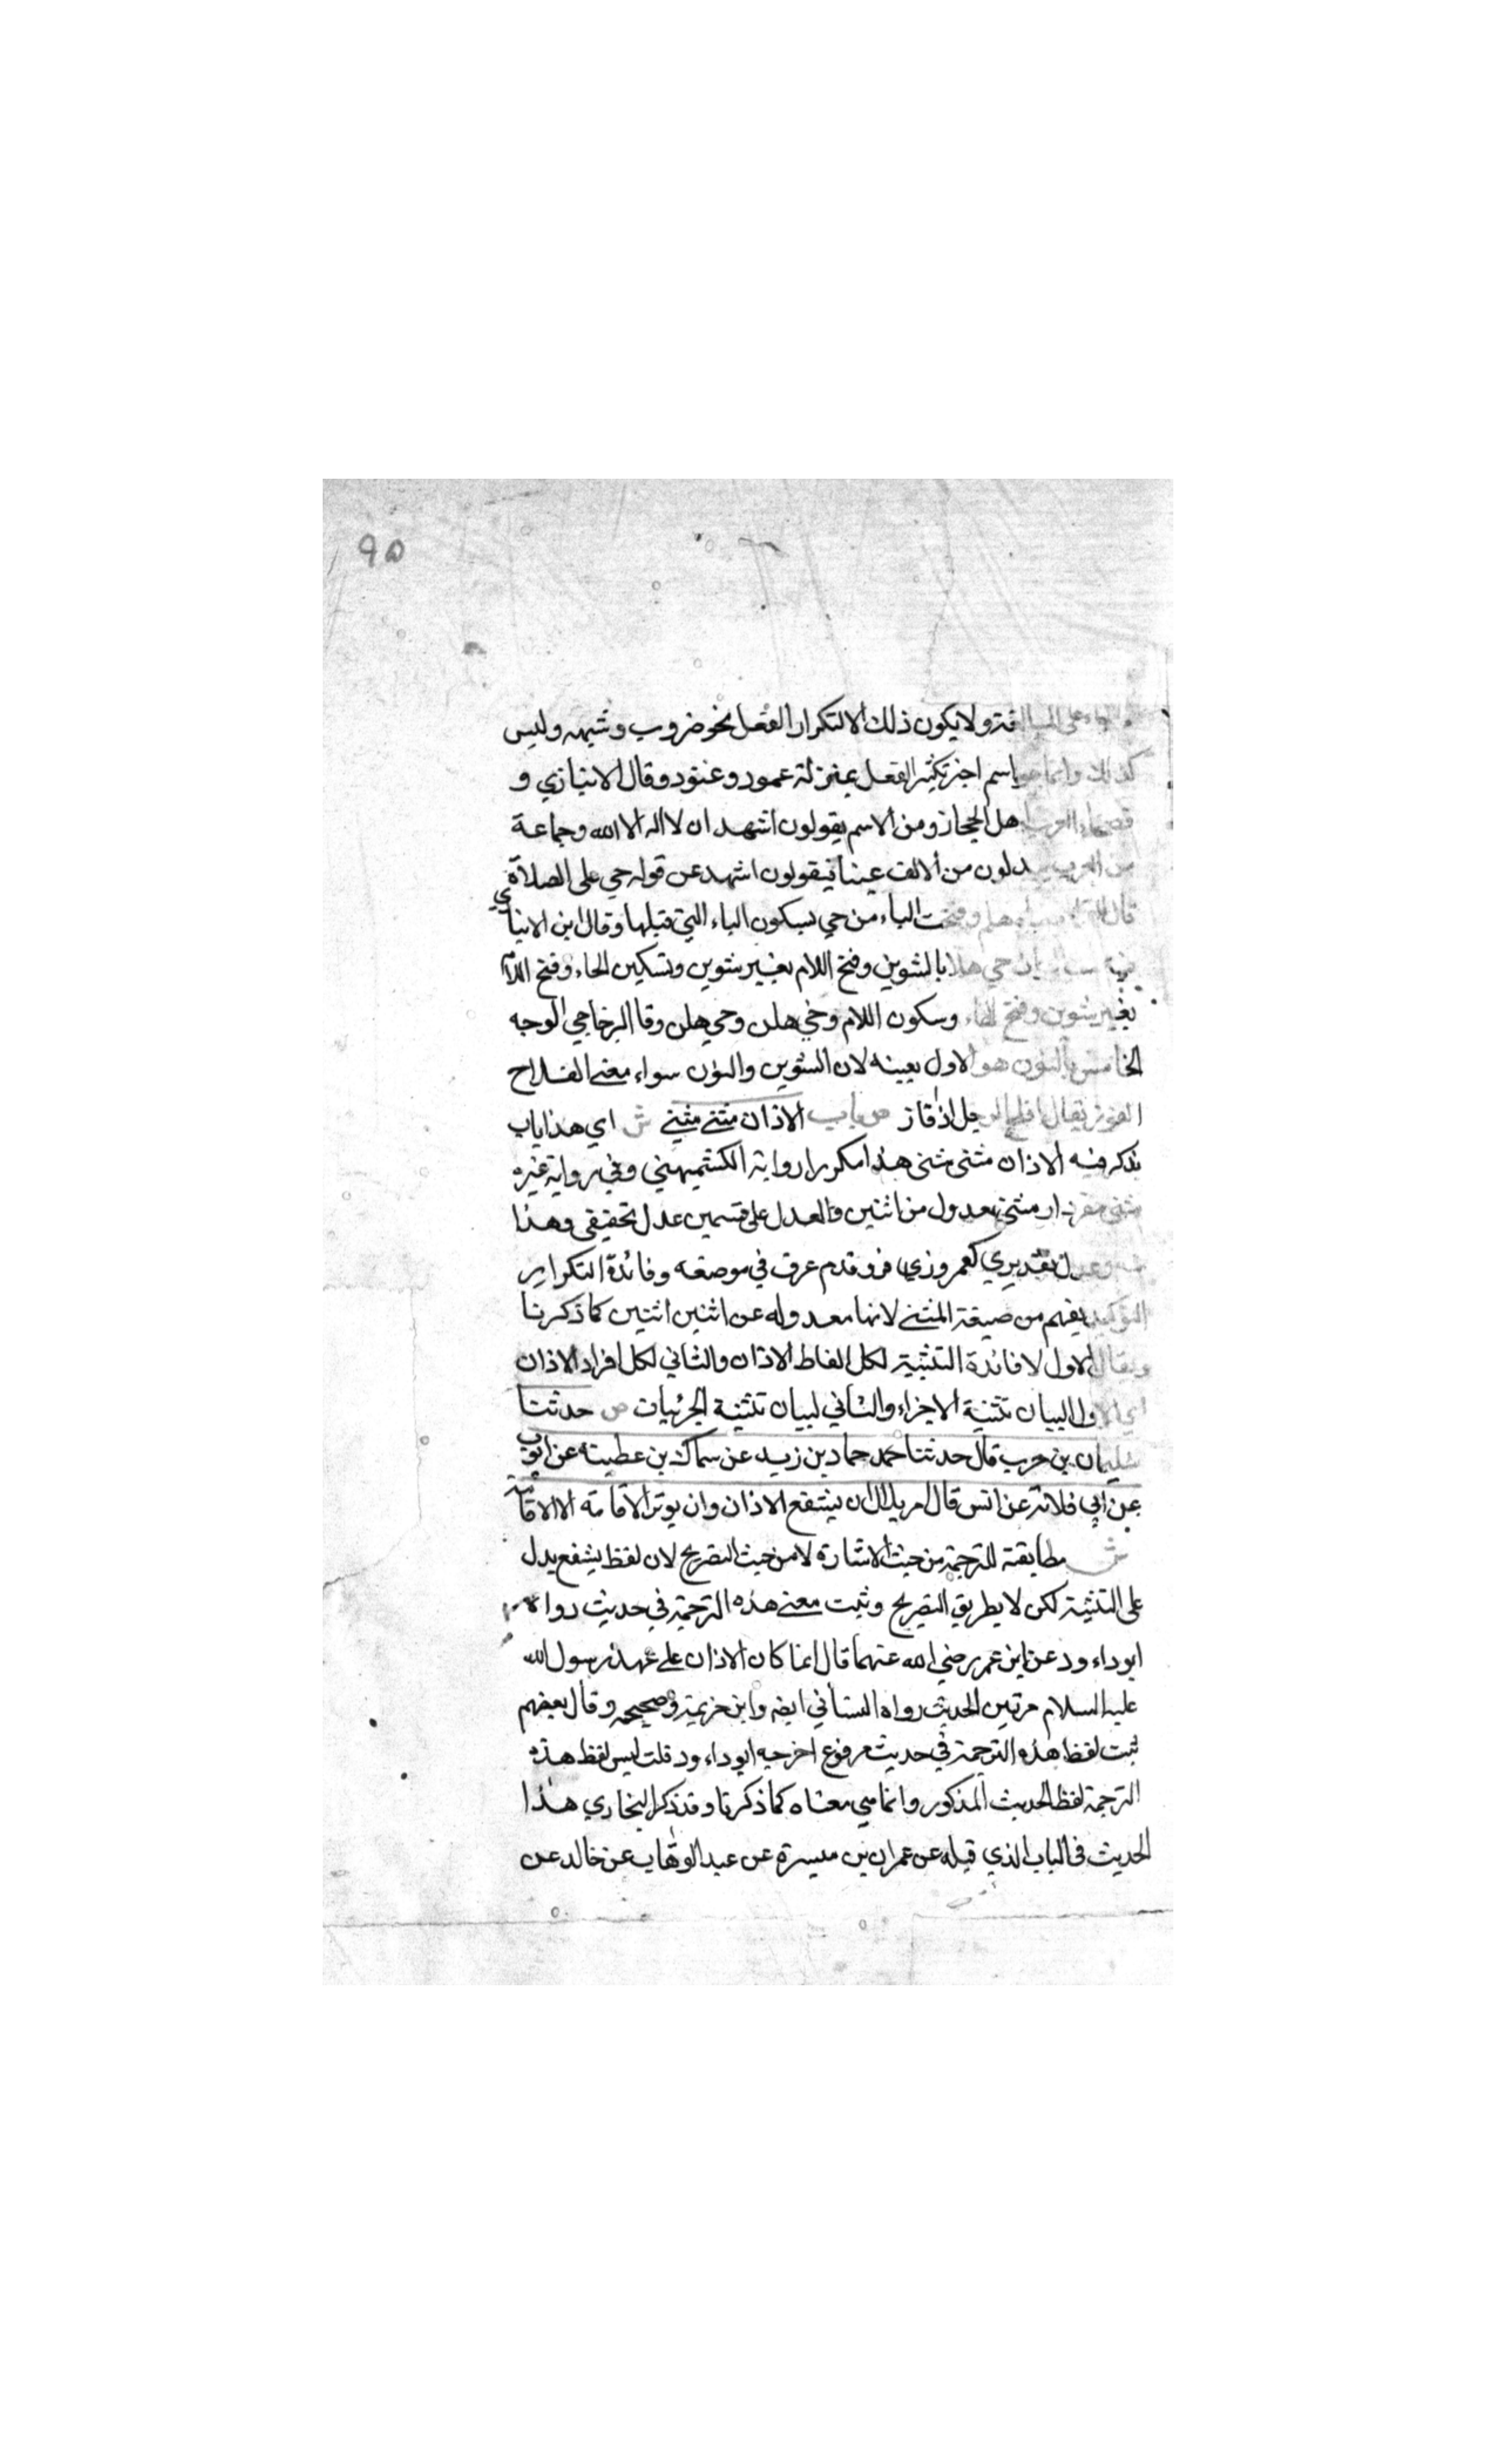 ٩٥
على المبالغة ولا يكون ذلك الا لتكرار الفعل نحو ضروب وشبهه وليس
كذلك وانما هو اسم اجز تكثير الفعل بمنزلة عمود وعنود وقال الانباري و
فصحاء العرب اهل الحجاز ومن الاسم يقولون اشهد ان لا اله الا الله وجماعة
من العرب يبدلون من الالف عينا فيقولون اشهد عن قوله حي على الصلاة
قال هلم وفتحت الياء من حي لسكون الياء التي قبلها وقال ابن الانباري
فيه حي هلا بالتنوين وفتح اللام بغير تنوين وتسكين الهاء وفتح اللام
بغير تنوين وفتح الهاء وسكون اللام وحي هلن وحي هلن وقال الزجاجي الوجه
الخامس بالنون هو الاول بعينه لان التنوين والنون سواء معنى الفلاح
الفوز يقال افلح الرجل اذا فاز ص باب الاذان مثنى مثنى ش اي هذا باب
يذكر فيه الاذان مثنى مثنى هذا مكررا رواية الكشميهني وفي رواية غيره
مثنى مفرد ار مثنى معدول من اثنين والعدل على قسمين عدل تحقيقي وهذا
منه وعدل تقديري كعمر وزفر وقدم عرف في موضعه وفائدة التكرار
التوكيد يفهم من صيغة المثنى لانها معدوله عن اثنين اثنين كما ذكرنا
ويقال الاول لا فائدة التثنية لكل الفاظ الاذان والثاني لكل افراد الاذان
اي الاول لبيان تثنية الاجزاء والثاني لبيان تثنية الجزئيات ص حدثنا
سليمان بن حرب قال حدثنا حمد حماد بن زيد عن سماك بن عطيته عن ايوب
عن ابي فلابة عن انس قال امر بلال ان يشفع الاذان وان يوتر الاقامة الا الاقامة
ش مطابقة للترجمة من حيث الاشارة لا من حيث التصريح لان لفظ يشفع يدل
على التثنية لكن لا بطريق التصريح وثبت معنى هذه الترجمة في حديث رواه
ابو داود عن ابن عمر رضي الله عنهما قال انما كان الاذان على عهد رسول الله
عليه السلام مرتين الحديث رواه النسائي ايضه وابن خزيمة وصحيحه وقال بعضهم
ثبت لفظ هذه الترجمة في حديث مرفوع اخرجه ابو داود قلت ليس لفظ هذه
الترجمة لفظ الحديث المذكور وانما هي معناه كما ذكرنا وقد ذكر البخاري هذا
الحديث في الباب الذي قبله عن عمران بن ميسرة عن عبد الوهاب عن خالد عن